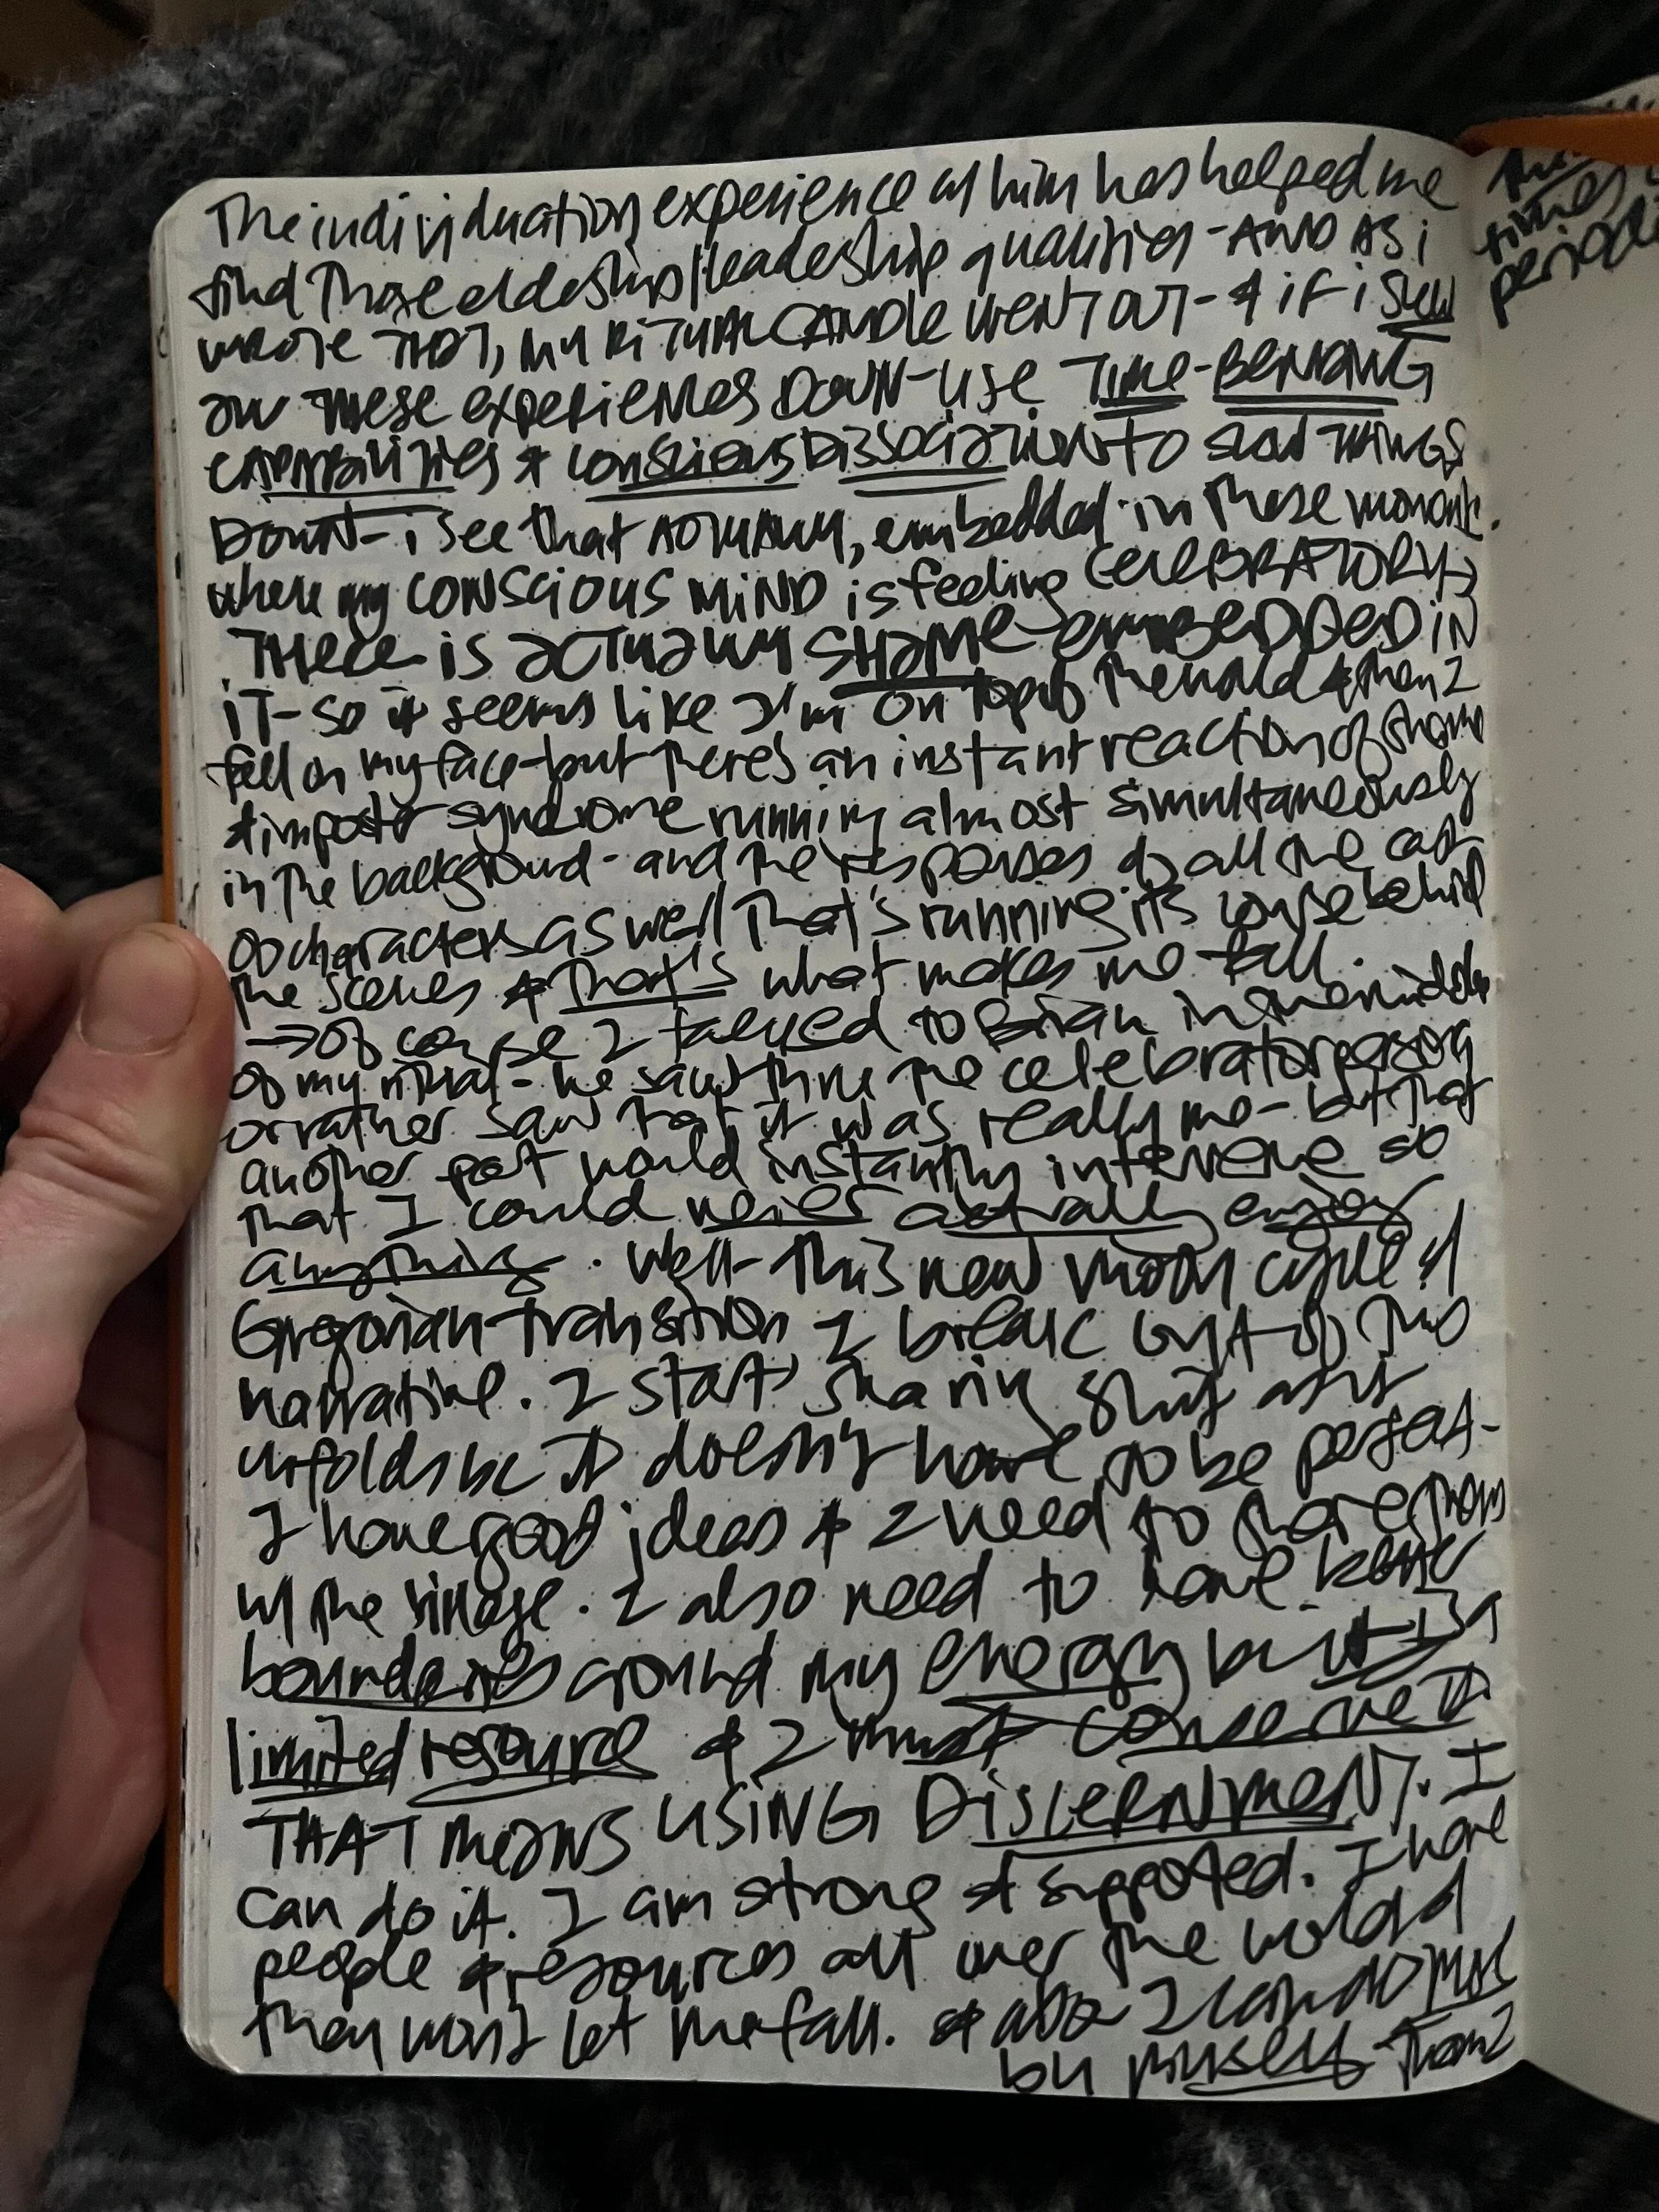 The individuation experience w/ him has helped me
find those eldership/leadership qualities - AND AS i
wrote THAT, my RITUAL CANDLE WENT OUT - & if i slow
all THESE experiences DOWN - use TIME-BENDING
CAPABILITIES & conscious DISSOCIATION TO slow THINGS
DOWN - i see that ACTUALLY, embedded in these moments
where my CONSCIOUS MIND is feeling CELEBRATORY →
THERE is actually SHAME embedded IN
IT - so it seems like I'm on top of the world & then I
fall on my face - but there's an instant reaction of shame
& imposter syndrome running almost simultaneously
in the background - and the responses of all the cast
of characters as well that's running its course behind
the scenes & that's what makes me fall.
→ Of course I talked to Brian in the middle
of my ritual - he saw thru the celebratory
or rather saw that it was really me - but that
another part would instantly intervene so
that I could never actually enjoy
anything. Well - this new moon cycle &
Gregorian transition I break out of this
narrative. I start sharing shit as it
unfolds bc it doesn't have to be perfect -
I have good ideas & I need to share them
w/ the village. I also need to have better
boundaries around my energy bc it is a
limited resource & I must conserve it
THAT means USING DISCERNMENT. I
can do it. I am strong & supported. I have
people & resources all over the world &
they won't let me fall. & also I can do this
by myself
times
period